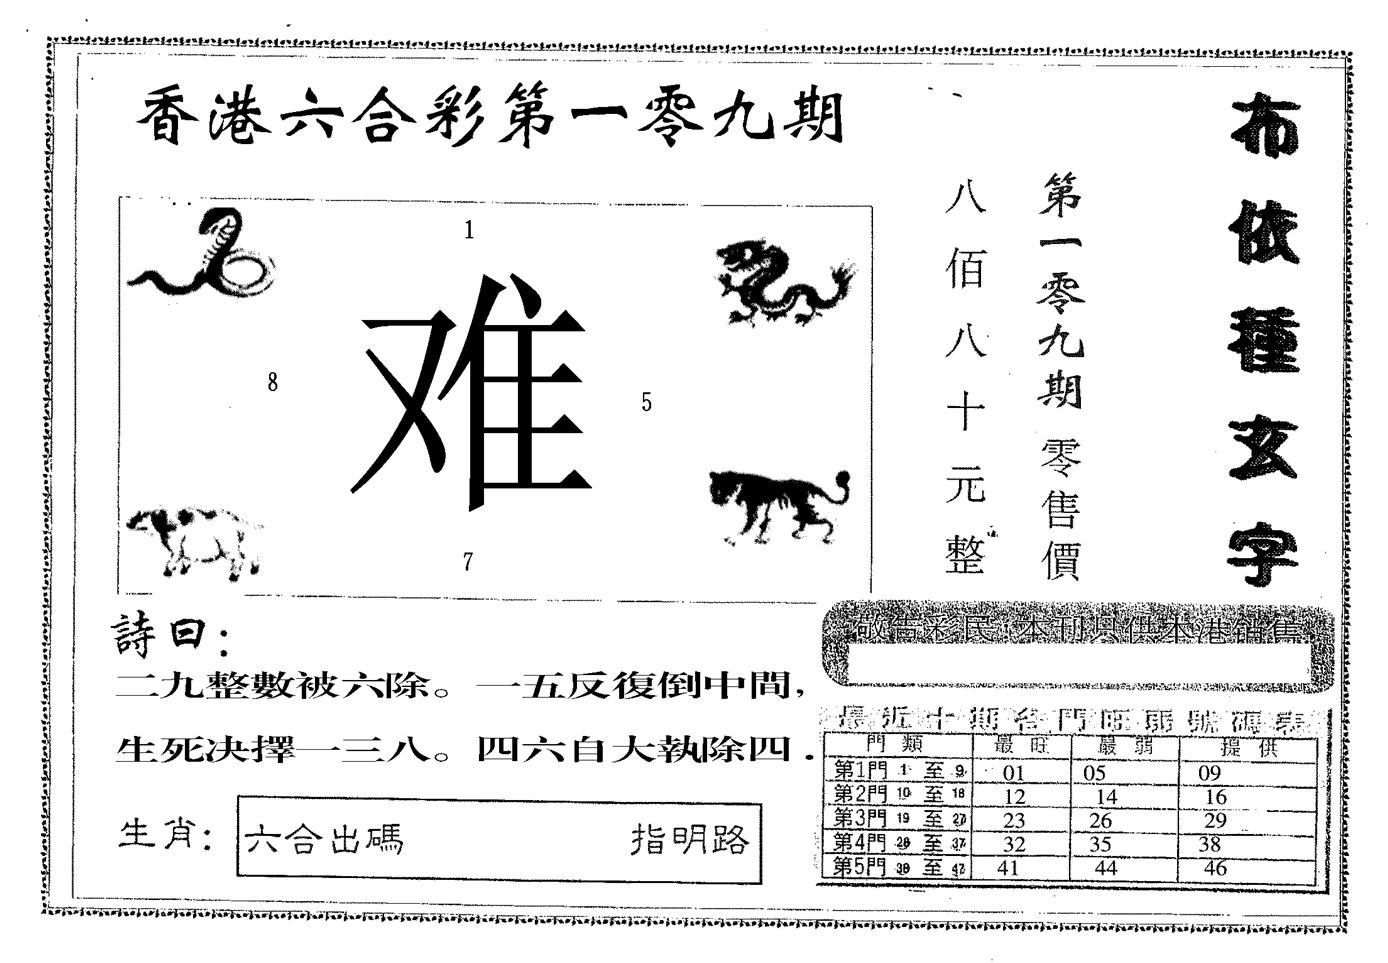 香港六合彩第一零九期
布依種玄字
第一零九期零售價
八佰八十元整
1
难
8
5
7
詩曰：
二九整數被六除。一五反復倒中間,
生死决擇一三八。四六自大執除四.
生肖: 六合出碼 指明路
敬告彩民:本刊只供本港銷售
最近十期各門旺弱號碼表
門類 最旺 最弱 提供
第1門 1 至 9 01 05 09
第2門 10 至 18 12 14 16
第3門 19 至 27 23 26 29
第4門 28 至 37 32 35 38
第5門 38 至 47 41 44 46